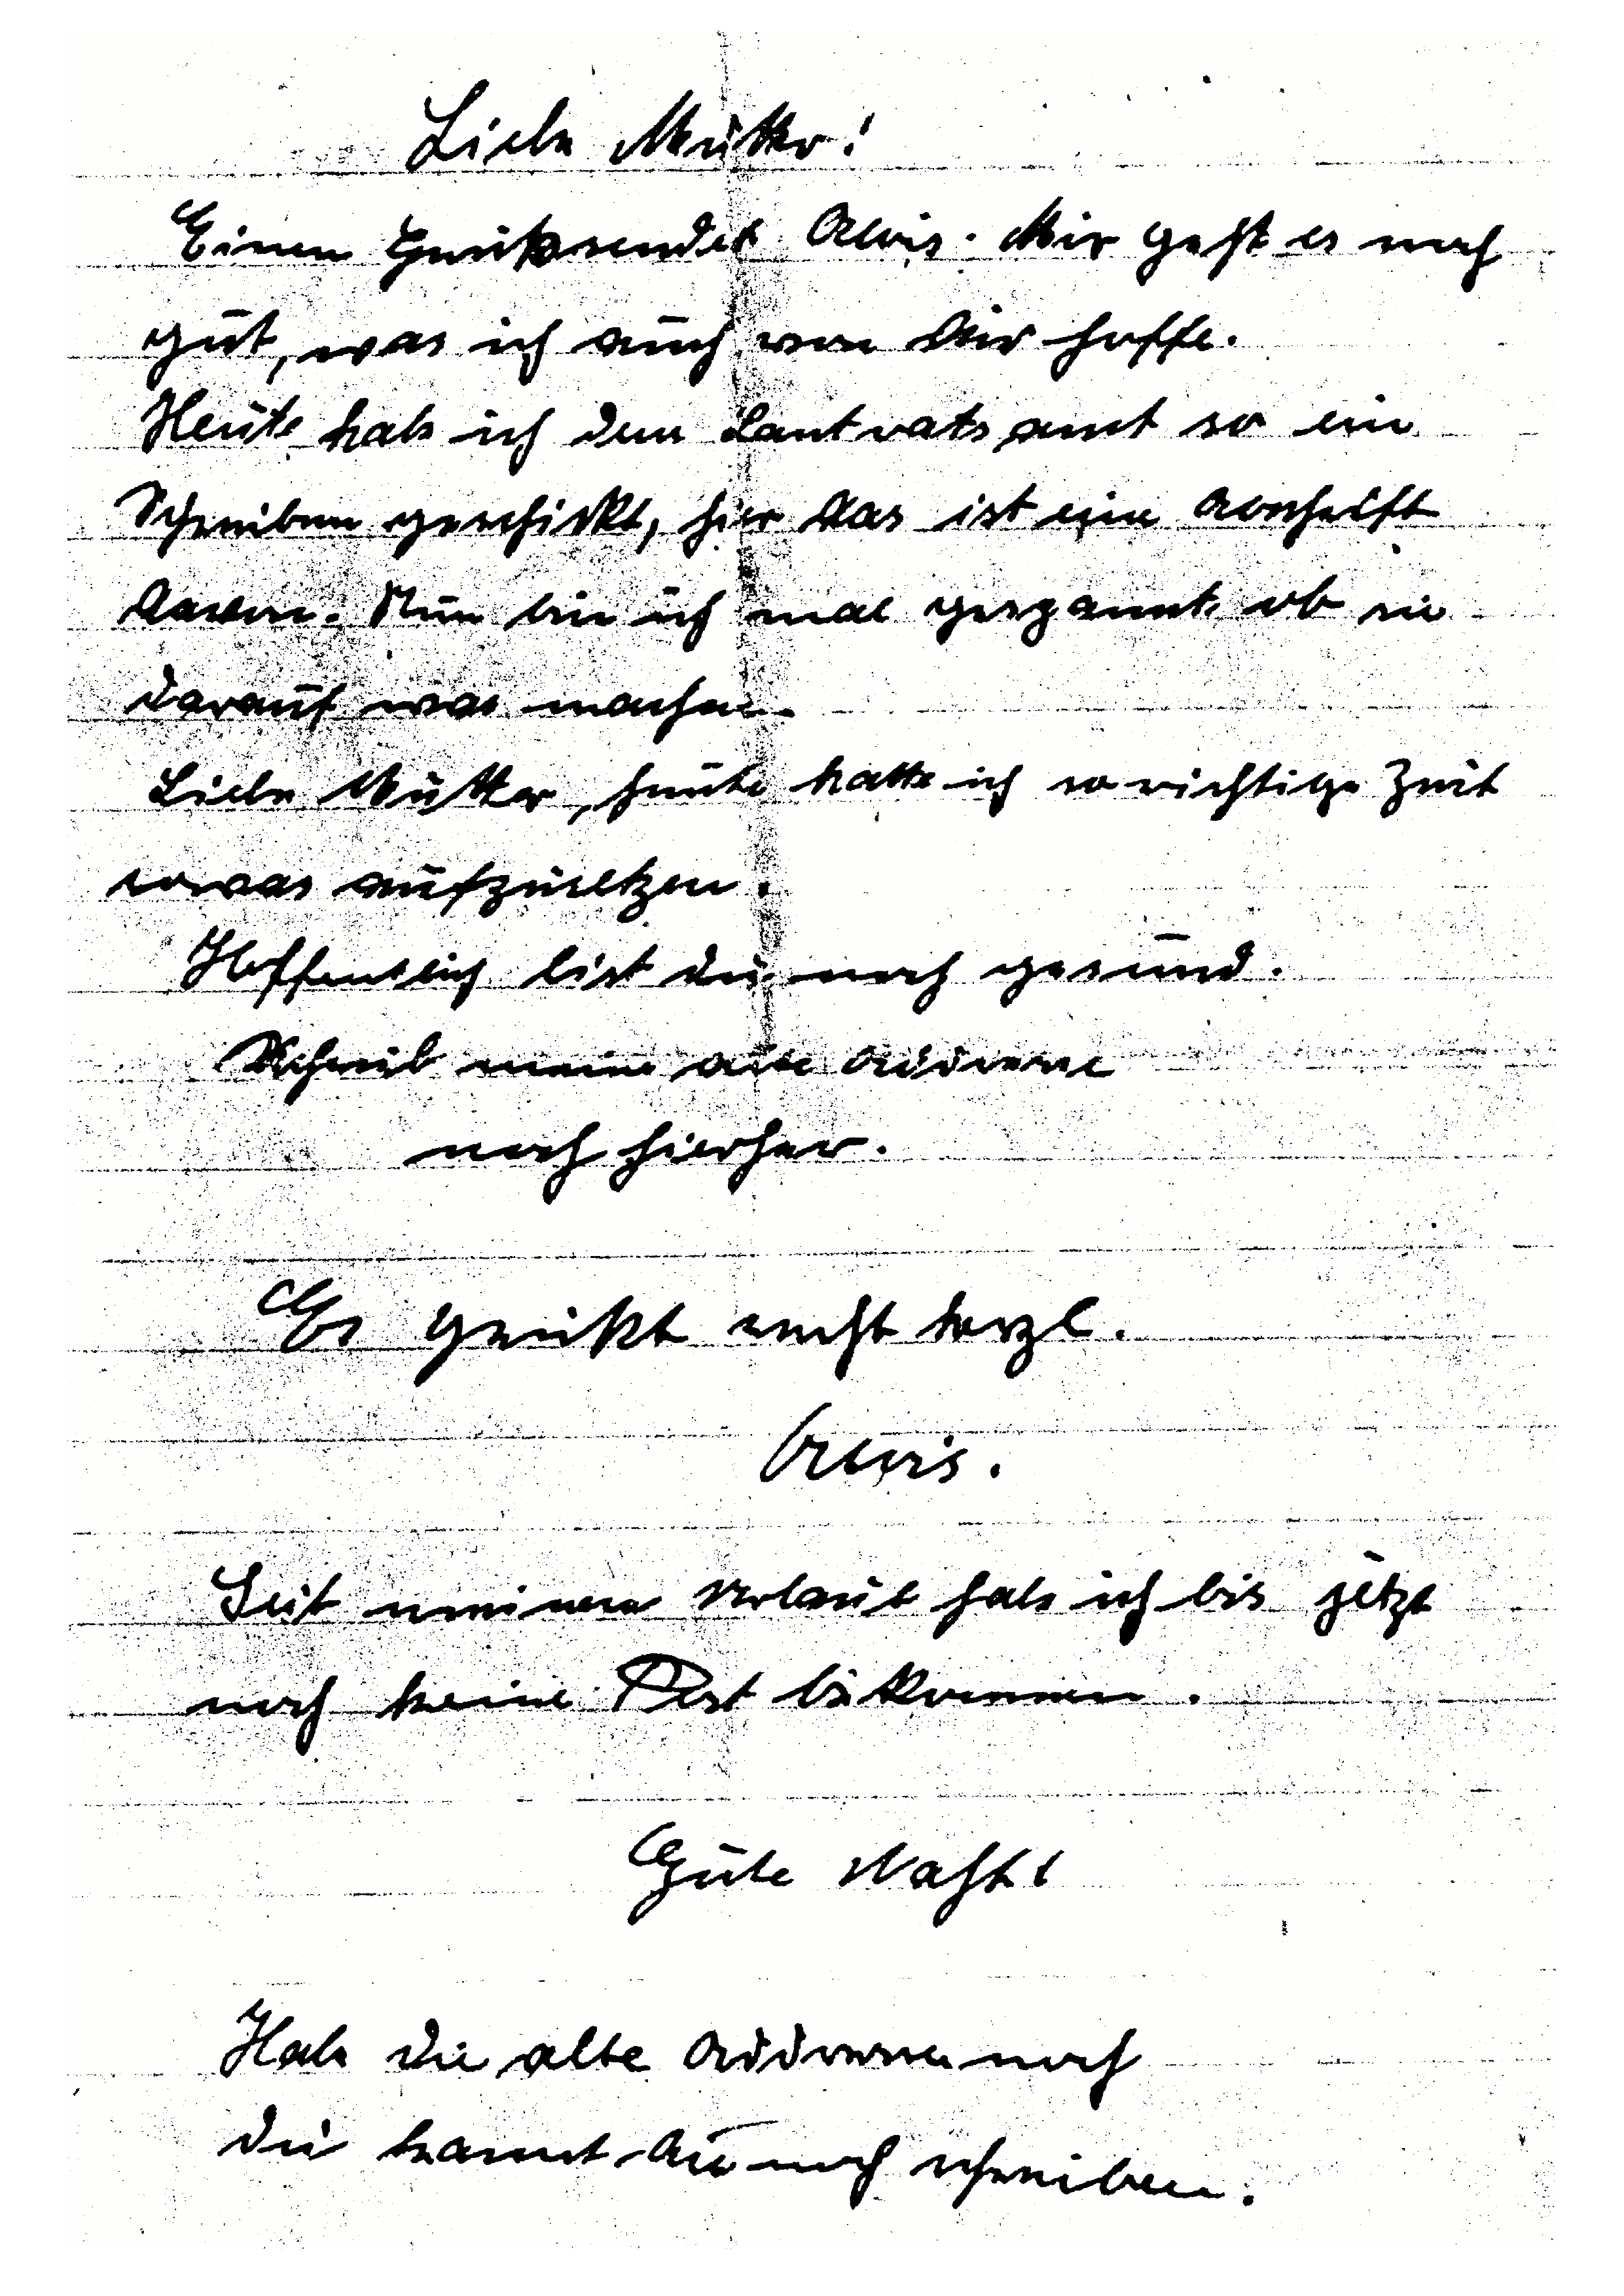 Liebe Mutter!
Einen Gruß sendet Alois. Mir geht es noch
gut, was ich auch von Dir hoffe.
Heute hab ich dem Lantratsamt so ein
Schreiben geschickt, hier das ist eine Abschrift
davon. Nun bin ich mal gespannt ob sie
darauf was machen.
Liebe Mutter, heute hatte ich so richtige Zeit
sowas aufzusetzen.
Hoffentlich bist du noch gesund.
Schreib meine alte Addresse
noch hierher.
Es grüßt recht herzl.
Alois.
Seit meinem Urlaub hab ich bis jetzt
noch keine Post bekommen.
Gute Nacht!
Hab die alte Addresse noch
die kannst Du noch schreiben.